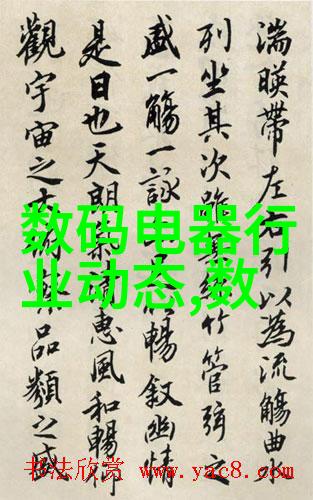 湍暎帶左右引以為流觴曲
列坐其次雖無絲竹管弦之
盛一觴一詠暢敘幽情
是日也天朗氣惠風和暢
觀宇宙之大品類之盛
数码电器行
业动态,数
书法欣赏 www.yac8.com